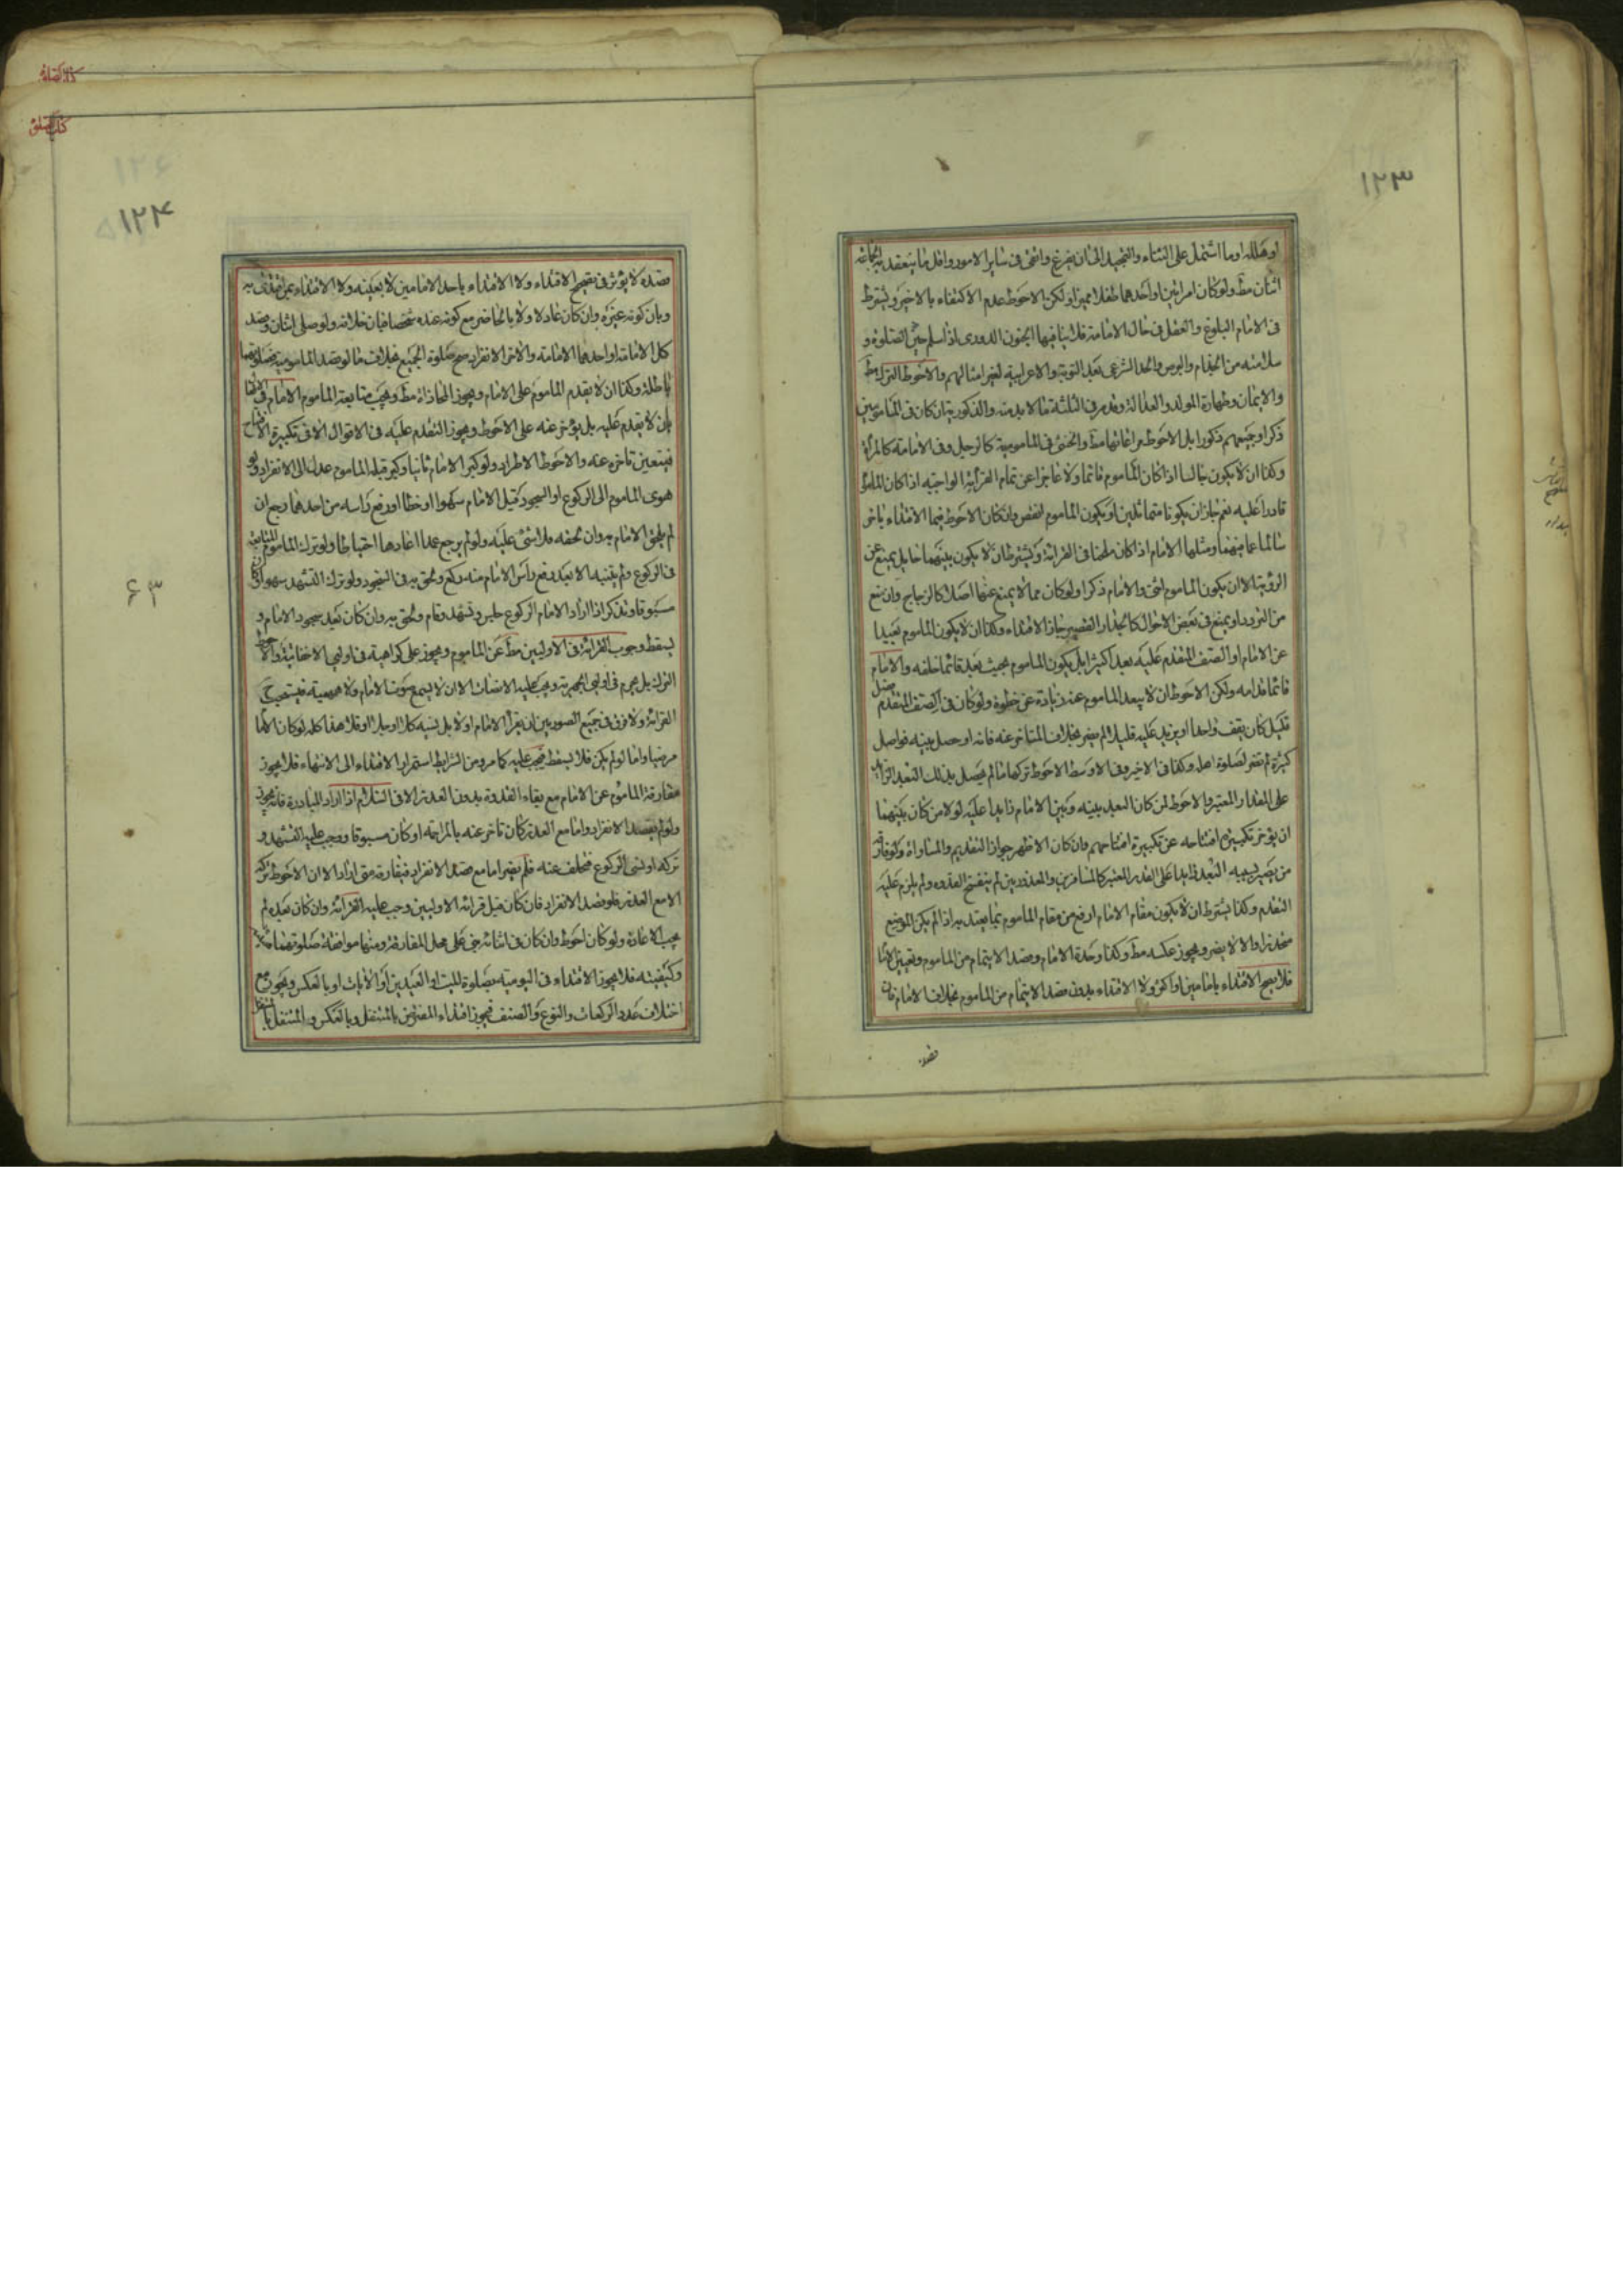 ١٢٣
او هلله او ما اشتمل على الثناء والتمجيد الى ان يفرغ وانتهى فى ساير الامور واقل ما ينعقد به الجماعة
اثنان مط ولو كان امرائين او احدهما طفلا مميزا ولكن الاحوط عدم الاكتفاء بالاخير ويشترط
فى الامام البلوغ والعقل فى حال الامامة فلا ينافيها الجنون الدورى اذا سلم حين الصلوة و
سلامته من الجذام والبرص والحد الشرعى بعد التوبة والاعرابية لغير امثالهم والاحوط الترك مط
والايمان وطهارة المولد والعدالة وقدر فى الثلثة ما لا بد منه والذكورية ان كان فى المامومين
ذكرا وجميعهم ذكورا بل الاحوط مراعاتها مط والخنثى فى المامومية كالرجل وفى الامامة كالمراة
وكذا ان لا يكون جالسا اذا كان الماموم قائما ولا عاجزا عن تمام القرائة الواجبة اذا كان الماموم
قادرا عليه نعم جاز ان يكونا متماثلين او يكون الماموم انقص وان كان الاحوط فيما الاقتداء باخر
سالما عما فيهما ومثلها الامام اذا كان ملحنا فى القرائة ويشترط ان لا يكون بينهما حايل يمنع عن
الروية الا ان يكون الماموم انثى والامام ذكرا ولو كان مما لا يمنع عنها اصلا كالزجاج وان منع
من التردد او يمنع فى بعض الاحوال كالجدار القصير جاز الاقتداء وكذا ان لا يكون الماموم بعيدا
عن الامام او الصف المتقدم عليه بعدا كثيرا بل يكون الماموم بحيث يعد قائما خلفه والامام
قائما قدامه ولكن الاحوط ان لا يبعد الماموم عنه زيادة عن خطوة ولو كان فى الصف المتقدم فصل
قليل كان يقف واحدا او يزيد عليه قليلا لم يضر بخلاف المتاخر عنه فانه او حصل بينه فواصل
كثيرة لم تضر لصلوة اهله وكذا فى الاخير وفى الاوسط الاحوط تركها ما لم يحصل بذلك البعد الزايد
على المقدار المعتبر والاحوط لمن كان البعد بينه وبين الامام زايدا عليه لولا من كان بينهما
ان يؤخر تكبيرة افتتاحه عن تكبيرة افتتاحهم وان كان الاظهر جواز التقديم والمساواة ولو فارق
من يصير بسببه البعد زايدا على القدر المعتبر كالمسافرين والمعذورين لم ينفسخ القدوه ولم يلزم عليه
التقدم وكذا يشترط ان لا يكون مقام الامام ارفع من مقام الماموم بما يعتد به اذا لم يكن الموضع
منحدرا والا لا يضر ويجوز عكسه مط وكذا وحدة الامام وقصد الايتمام من الماموم وتعيين الامام
فلا يصح الاقتداء بامامين او اكثر ولا الاقتداء بدون قصد الايتمام من الماموم بخلاف الامام فان
قصده
١٢٤
٦٣
قصده لا يؤثر فى تصحيح الاقتداء ولا الاقتداء باحد الامامين لا بعينه ولا الاقتداء بمن اقتدى به
وبان كونه غيره وان كان عادلا ولا بالحاضر مع كونه عنده شخصا فبان خلافه ولو صلى اثنان وقصد
كل الامامة او احدهما الامامة والاخر الانفراد صح صلوة الجميع بخلاف ما لو قصد المامومية فصلوتهما
باطلة وكذا ان لا يتقدم الماموم على الامام ويجوز المحاذاة مط ويجب متابعة الماموم الامام فى الافعال
بان لا يتقدم عليه بل يؤخر عنه على الاحوط ويجوز التقدم عليه فى الاقوال الا فى تكبيرة الافتتاح
فيتعين تاخره عنه والاحوط الاطراد ولو كبر الامام ثانيا وكبر قبله الماموم عدل الى الانفراد ولو
هوى الماموم الى الركوع او السجود قبل الامام سهوا او خطا او رفع راسه من احدهما رجع ان
لم يلحق الامام به وان لحقه فلا شئ عليه ولو لم يرجع عمدا اعادها احتياطا ولو ترك الماموم المتابعة
فى الركوع ولم يتنبه الا بعد رفع راس الامام منه ركع ولحق به فى السجود ولو ترك التشهد سهوا وكان
مسبوقا وتذكر اذا اراد الامام الركوع جلس وتشهد وقام ولحق به وان كان بعد سجود الامام و
يسقط وجوب القرائة فى الاوليين مط عن الماموم ويجوز على كراهية فى اوليى الاخفاتية والاحوط
الترك بل يحرم فى اوليى الجهرية ويجب عليه الانصات الا ان لا يسمع صوت الامام ولا همهمته فيستحب ح
القرائة ولا فرق فى جميع الصور بين ان يقرأ الامام اولا بل نسيه كلا او جلا او قلا هذا كله لو كان الامام
مرضيا واما لو لم يكن فلا يسقط فيجب عليه كما مر ومن الشرايط استمرار الاقتداء الى الانتهاء فلا يجوز
مفارقة الماموم عن الامام مع بقاء القدوة بدون العذر الا فى السلام اذا اراد المبادرة فانه يجوز
ولو لم يقصد الانفراد واما مع العذر كان تاخر عنه بالمزاحمة او كان مسبوقا ووجب عليه التشهد و
تركه او نسى الركوع فتخلف عنه فلم يضر اما مع قصد الانفراد فيفارقه متى اراد الا ان الاحوط تركه
الا مع العذر فلو قصد الانفراد فان كان قبل قرائة الاوليين وجب عليه القرائة وان كان بعده لم
يجب الاعادة ولو كان احوط وان كان فى اثنائه بنى على محل المفارقة ومنها موافقة صلوتهما
وكيفيته فلا يجوز الاقتداء فى اليومية بصلوة الميت او العيدين او الايات او بالعكس ويجوز مع
اختلاف عدد الركعات والنوع والصنف فيجوز اقتداء المفترض بالمتنفل وبالعكس والمتنفل